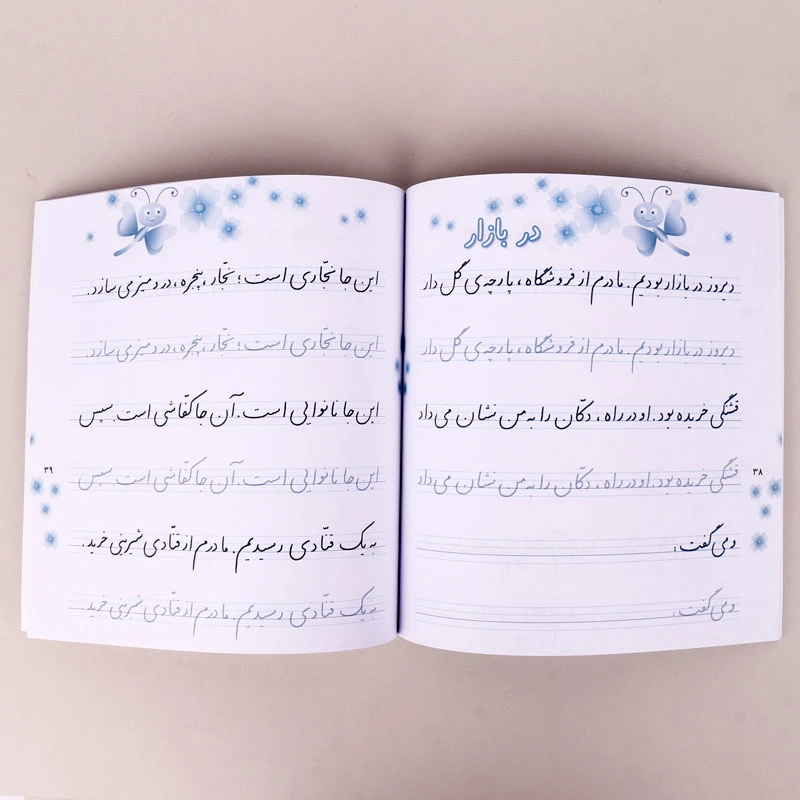 در بازار
دیروز در بازار بودیم. مادرم از فروشگاه، پارچه‌ی گل دار
دیروز در بازار بودیم. مادرم از فروشگاه، پارچه‌ی گل دار
قشنگی خریده بود. او در راه، دکّان را به من نشان می‌داد
قشنگی خریده بود. او در راه، دکّان را به من نشان می‌داد
و می‌گفت:
و می‌گفت:
۳۸
این جا نجّاری است؛ نجّار، پنجره، در و میز می سازد.
این جا نجّاری است؛ نجّار، پنجره، در و میز می سازد.
این جا نانوایی است. آن جا کفّاشی است. سپس
این جا نانوایی است. آن جا کفّاشی است. سپس
به یک قنّادی رسیدیم. مادرم از قنّادی شیرینی خرید.
به یک قنّادی رسیدیم. مادرم از قنّادی شیرینی خرید.
۳۹